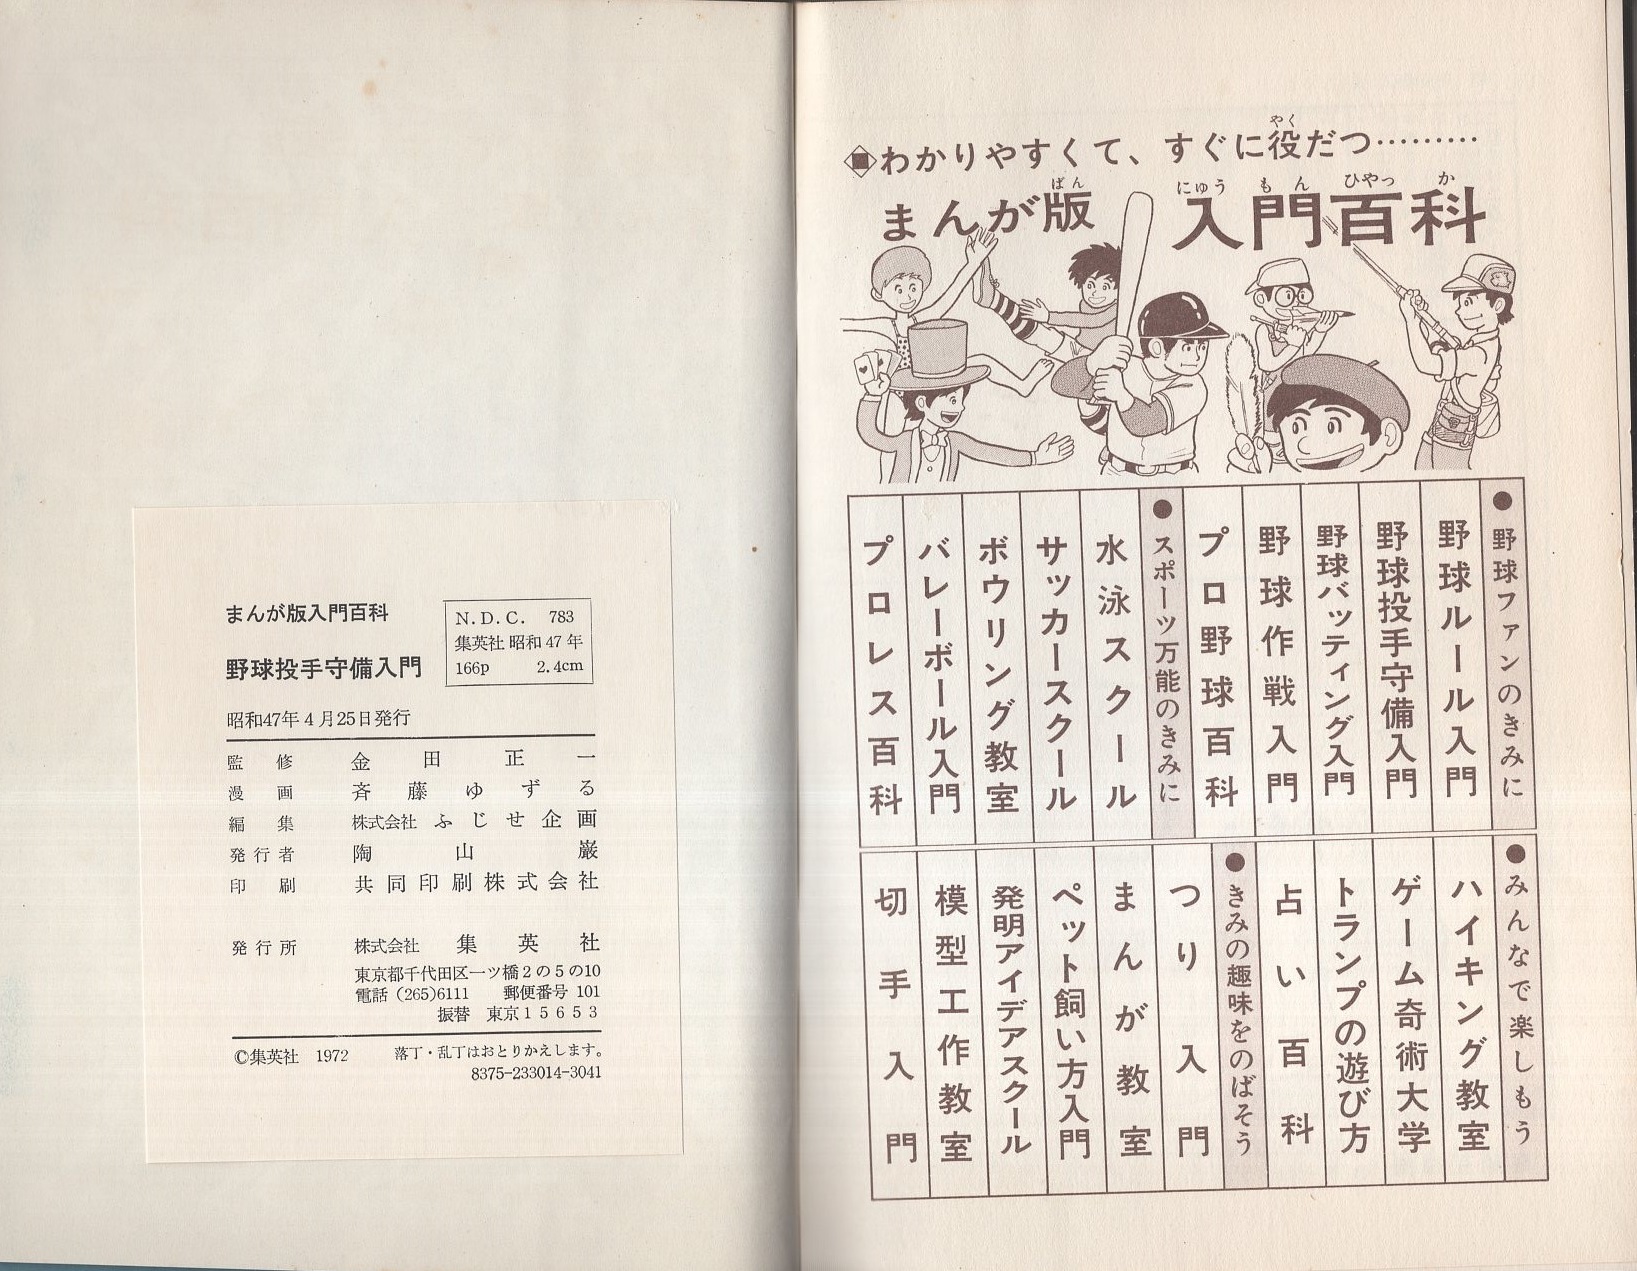 まんが版入門百科
野球投手守備入門
N.D.C. 783
集英社 昭和 47 年
166p 2.4cm
昭和47年4月25日発行
監修 金田正一
漫画 斉藤ゆずる
編集 株式会社 ふじせ企画
発行者 陶山巌
印刷 共同印刷株式会社
発行所 株式会社 集英社
東京都千代田区一ツ橋2の5の10
電話 (265)6111 郵便番号 101
振替 東京15653
©集英社 1972 落丁・乱丁はおとりかえします。
8375-233014-3041
わかりやすくて、すぐに役だつ………
やく
まんが版 入門百科
ばん にゅうもんひやっか
●野球ファンのきみに
野球ルール入門
野球投手守備入門
野球バッティング入門
野球作戦入門
プロ野球百科
●スポーツ万能のきみに
水泳スクール
サッカースクール
ボウリング教室
バレーボール入門
プロレス百科
●みんなで楽しもう
ハイキング教室
ゲーム奇術大学
トランプの遊び方
占い百科
●きみの趣味をのばそう
つり入門
まんが教室
ペット飼い方入門
発明アイデアスクール
模型工作教室
切手入門